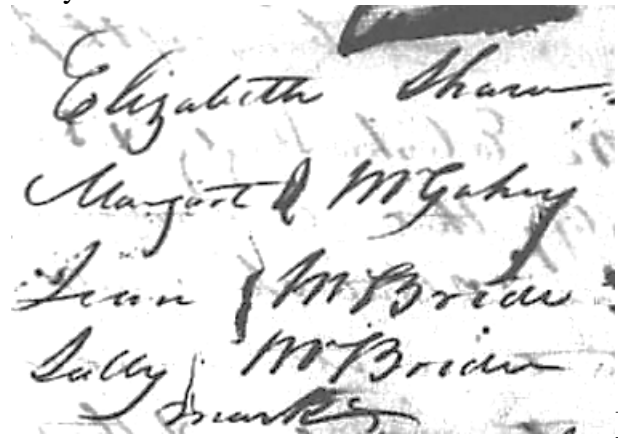 Elizabeth Shaw
Margart McGahey
Jean McBride
Sally McBride
marks